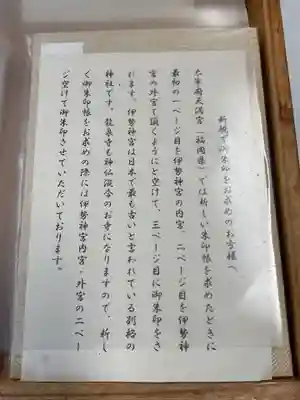 新規で御朱印をお求めのお客様へ
太宰府天満宮（福岡県）では新しい朱印帳を求めたときに
最初の一ページ目を伊勢神宮の内宮、二ページ目を伊勢神
宮の外宮で頂くようにと空けて、三ページ目に御朱印をさ
れます。伊勢神宮は日本で最も古いと言われている別格の
神社です。龍泉寺も神仏混合のお寺になりますので、新し
く御朱印帳をお求めの際には伊勢神宮内宮・外宮の二ペー
ジ空けて御朱印させていただいております。